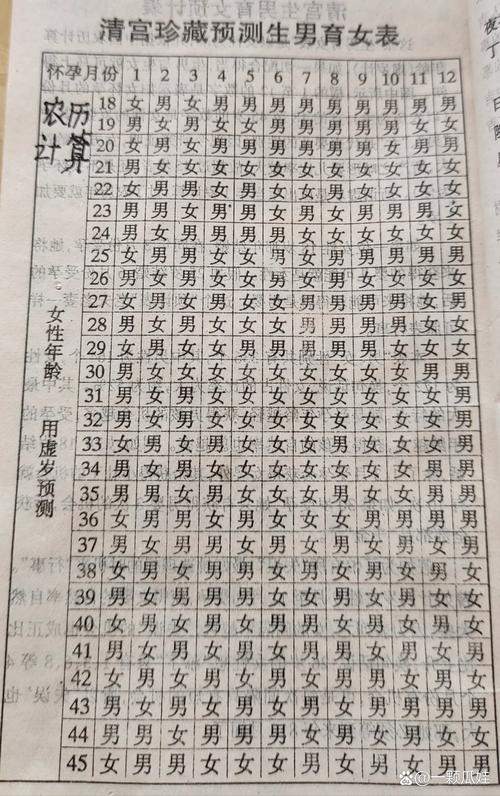 清宫珍藏预测生男育女表
怀孕月份 1 2 3 4 5 6 7 8 9 10 11 12
农历
计算
女性年龄 用虚岁预测
18 女 男 女 男 男 男 男 男 男 男 男 男
19 男 女 男 女 女 男 男 男 男 男 女 女
20 女 男 女 男 男 男 男 男 男 女 男 男
21 男 女 女 女 女 女 女 女 女 女 女 女
22 女 男 男 女 男 女 女 男 女 女 女 女
23 男 男 女 男 男 女 男 女 男 男 男 女
24 男 女 男 男 男 男 女 女 女 女 女 女
25 女 男 男 女 女 男 女 男 男 男 男 男
26 男 女 男 女 女 男 女 男 女 女 女 女
27 女 男 女 男 女 女 男 男 男 男 女 男
28 男 女 男 女 女 女 男 男 男 男 女 女
29 男 女 女 女 男 男 男 男 男 女 女 女
30 男 女 女 女 女 女 女 女 女 女 男 男
31 男 女 男 女 女 女 女 女 女 女 女 男
32 男 女 男 女 女 女 女 女 女 女 女 男
33 女 男 女 男 女 女 女 男 女 女 女 男
34 男 女 男 女 女 女 女 女 女 女 男 男
35 男 男 女 男 女 女 女 男 女 女 男 男
36 女 男 男 女 男 女 女 女 男 男 男 男
37 男 女 男 男 女 男 女 男 女 男 女 男
38 女 男 女 男 男 女 男 女 男 女 男 女
39 男 女 男 男 男 女 女 男 女 男 女 女
40 女 男 女 男 女 男 男 女 男 女 男 女
41 男 女 男 女 男 女 男 男 女 男 女 男
42 女 男 女 男 女 男 女 男 男 女 男 女
43 男 女 男 女 男 女 男 女 男 男 男 男
44 男 男 女 男 男 男 女 男 女 男 女 女
45 女 男 男 女 女 女 男 女 男 女 男 男
@一颗瓜娃